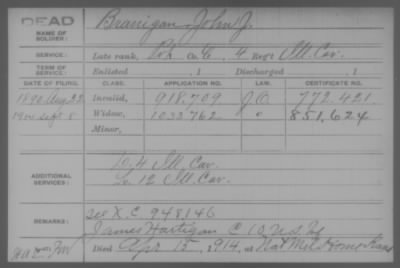 DEAD
NAME OF SOLDIER:
Branigan, John J.
SERVICE:
Late rank, Pvt Co. E, 4 Reg't Ill. Cav.
TERM OF SERVICE:
Enlisted , 1 Discharged , 1
DATE OF FILING. CLASS. APPLICATION NO. LAW. CERTIFICATE NO.
1890 Aug 22 Invalid, 918,709 772.421.
Sept 8 Widow, 1033762 " 851,624
Minor,
ADDITIONAL SERVICES:
4 Ill. Cav.
12 Ill. Cav.
REMARKS:
see X.C. 948146
James Hartigan C 10 U.S. Inf
Died Apr 15, 1914, at Nat Mil Home Kans